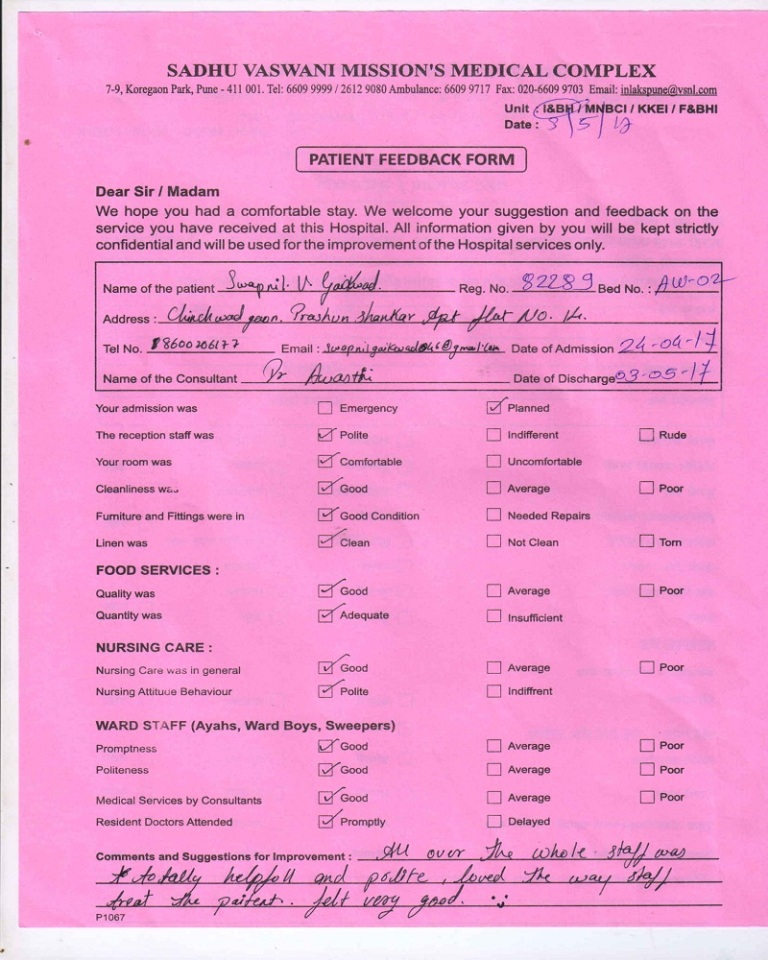 SADHU VASWANI MISSION'S MEDICAL COMPLEX
7-9, Koregaon Park, Pune - 411 001. Tel: 6609 9999 / 2612 9080 Ambulance: 6609 9717 Fax: 020-6609 9703 Email: inlakspune@vsnl.com
Unit : I&BH / MNBCI / KKEI / F&BHI
Date : 3/5/17
PATIENT FEEDBACK FORM
Dear Sir / Madam
We hope you had a comfortable stay. We welcome your suggestion and feedback on the
service you have received at this Hospital. All information given by you will be kept strictly
confidential and will be used for the improvement of the Hospital services only.
Name of the patient Swapnil. V. Gaikwad. Reg. No. 82289 Bed No. : AW-02
Address : Chinchwadgaon. Prashun shankar Apt flat No. 14.
Tel No. 8600206177 Email : swapnilgaikwad046@gmail.com Date of Admission 24-04-17
Name of the Consultant Dr Awasthi Date of Discharge 03-05-17
Your admission was Emergency Planned
The reception staff was Polite Indifferent Rude
Your room was Comfortable Uncomfortable
Cleanliness was Good Average Poor
Furniture and Fittings were in Good Condition Needed Repairs
Linen was Clean Not Clean Torn
FOOD SERVICES :
Quality was Good Average Poor
Quantity was Adequate Insufficient
NURSING CARE :
Nursing Care was in general Good Average Poor
Nursing Attitude Behaviour Polite Indiffrent
WARD STAFF (Ayahs, Ward Boys, Sweepers)
Promptness Good Average Poor
Politeness Good Average Poor
Medical Services by Consultants Good Average Poor
Resident Doctors Attended Promptly Delayed
Comments and Suggestions for Improvement : All over the whole staff was
totally helpfull and polite, loved the way staff
treat the paitent. felt very good.
P1067